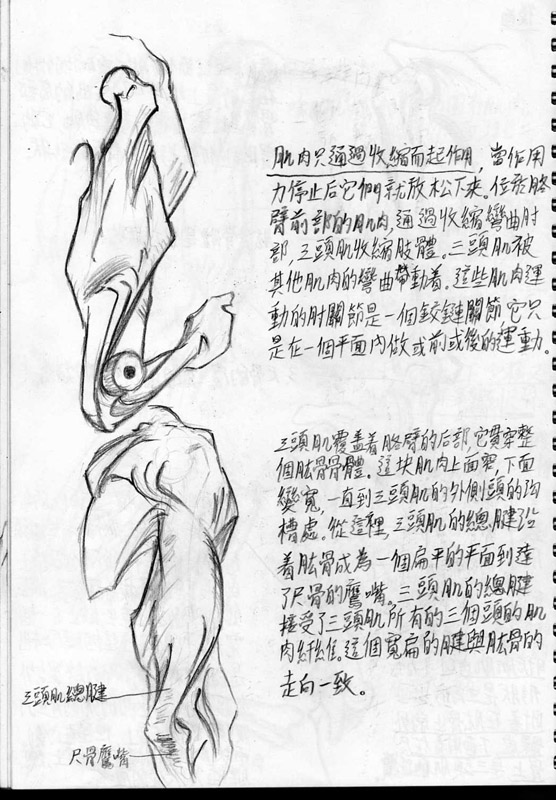 肌肉只通過收縮而起作用，當作用
力停止后它們就放松下來。位於胳
臂前部的肌肉，通過收縮彎曲肘
部，三頭肌收縮肢體。三頭肌被
其他肌肉的彎曲帶動着。這些肌肉運
動的肘關節是一個鉸鏈關節，它只
是在一個平面內做或前或後的運動。
三頭肌覆盖着胳臂的后部，它貫穿整
個肱骨骨體。這块肌肉上面窄，下面
變寬，一直到三頭肌的外側頭的沟
槽處。從這裡，三頭肌的總腱沿
着肱骨成為一個扁平的平面到達
了尺骨的鷹嘴。三頭肌的總腱
接受了三頭肌所有的三個頭的肌
肉纤維。這個寬扁的腱與肱骨的
走向一致。
三頭肌總腱
尺骨鷹嘴